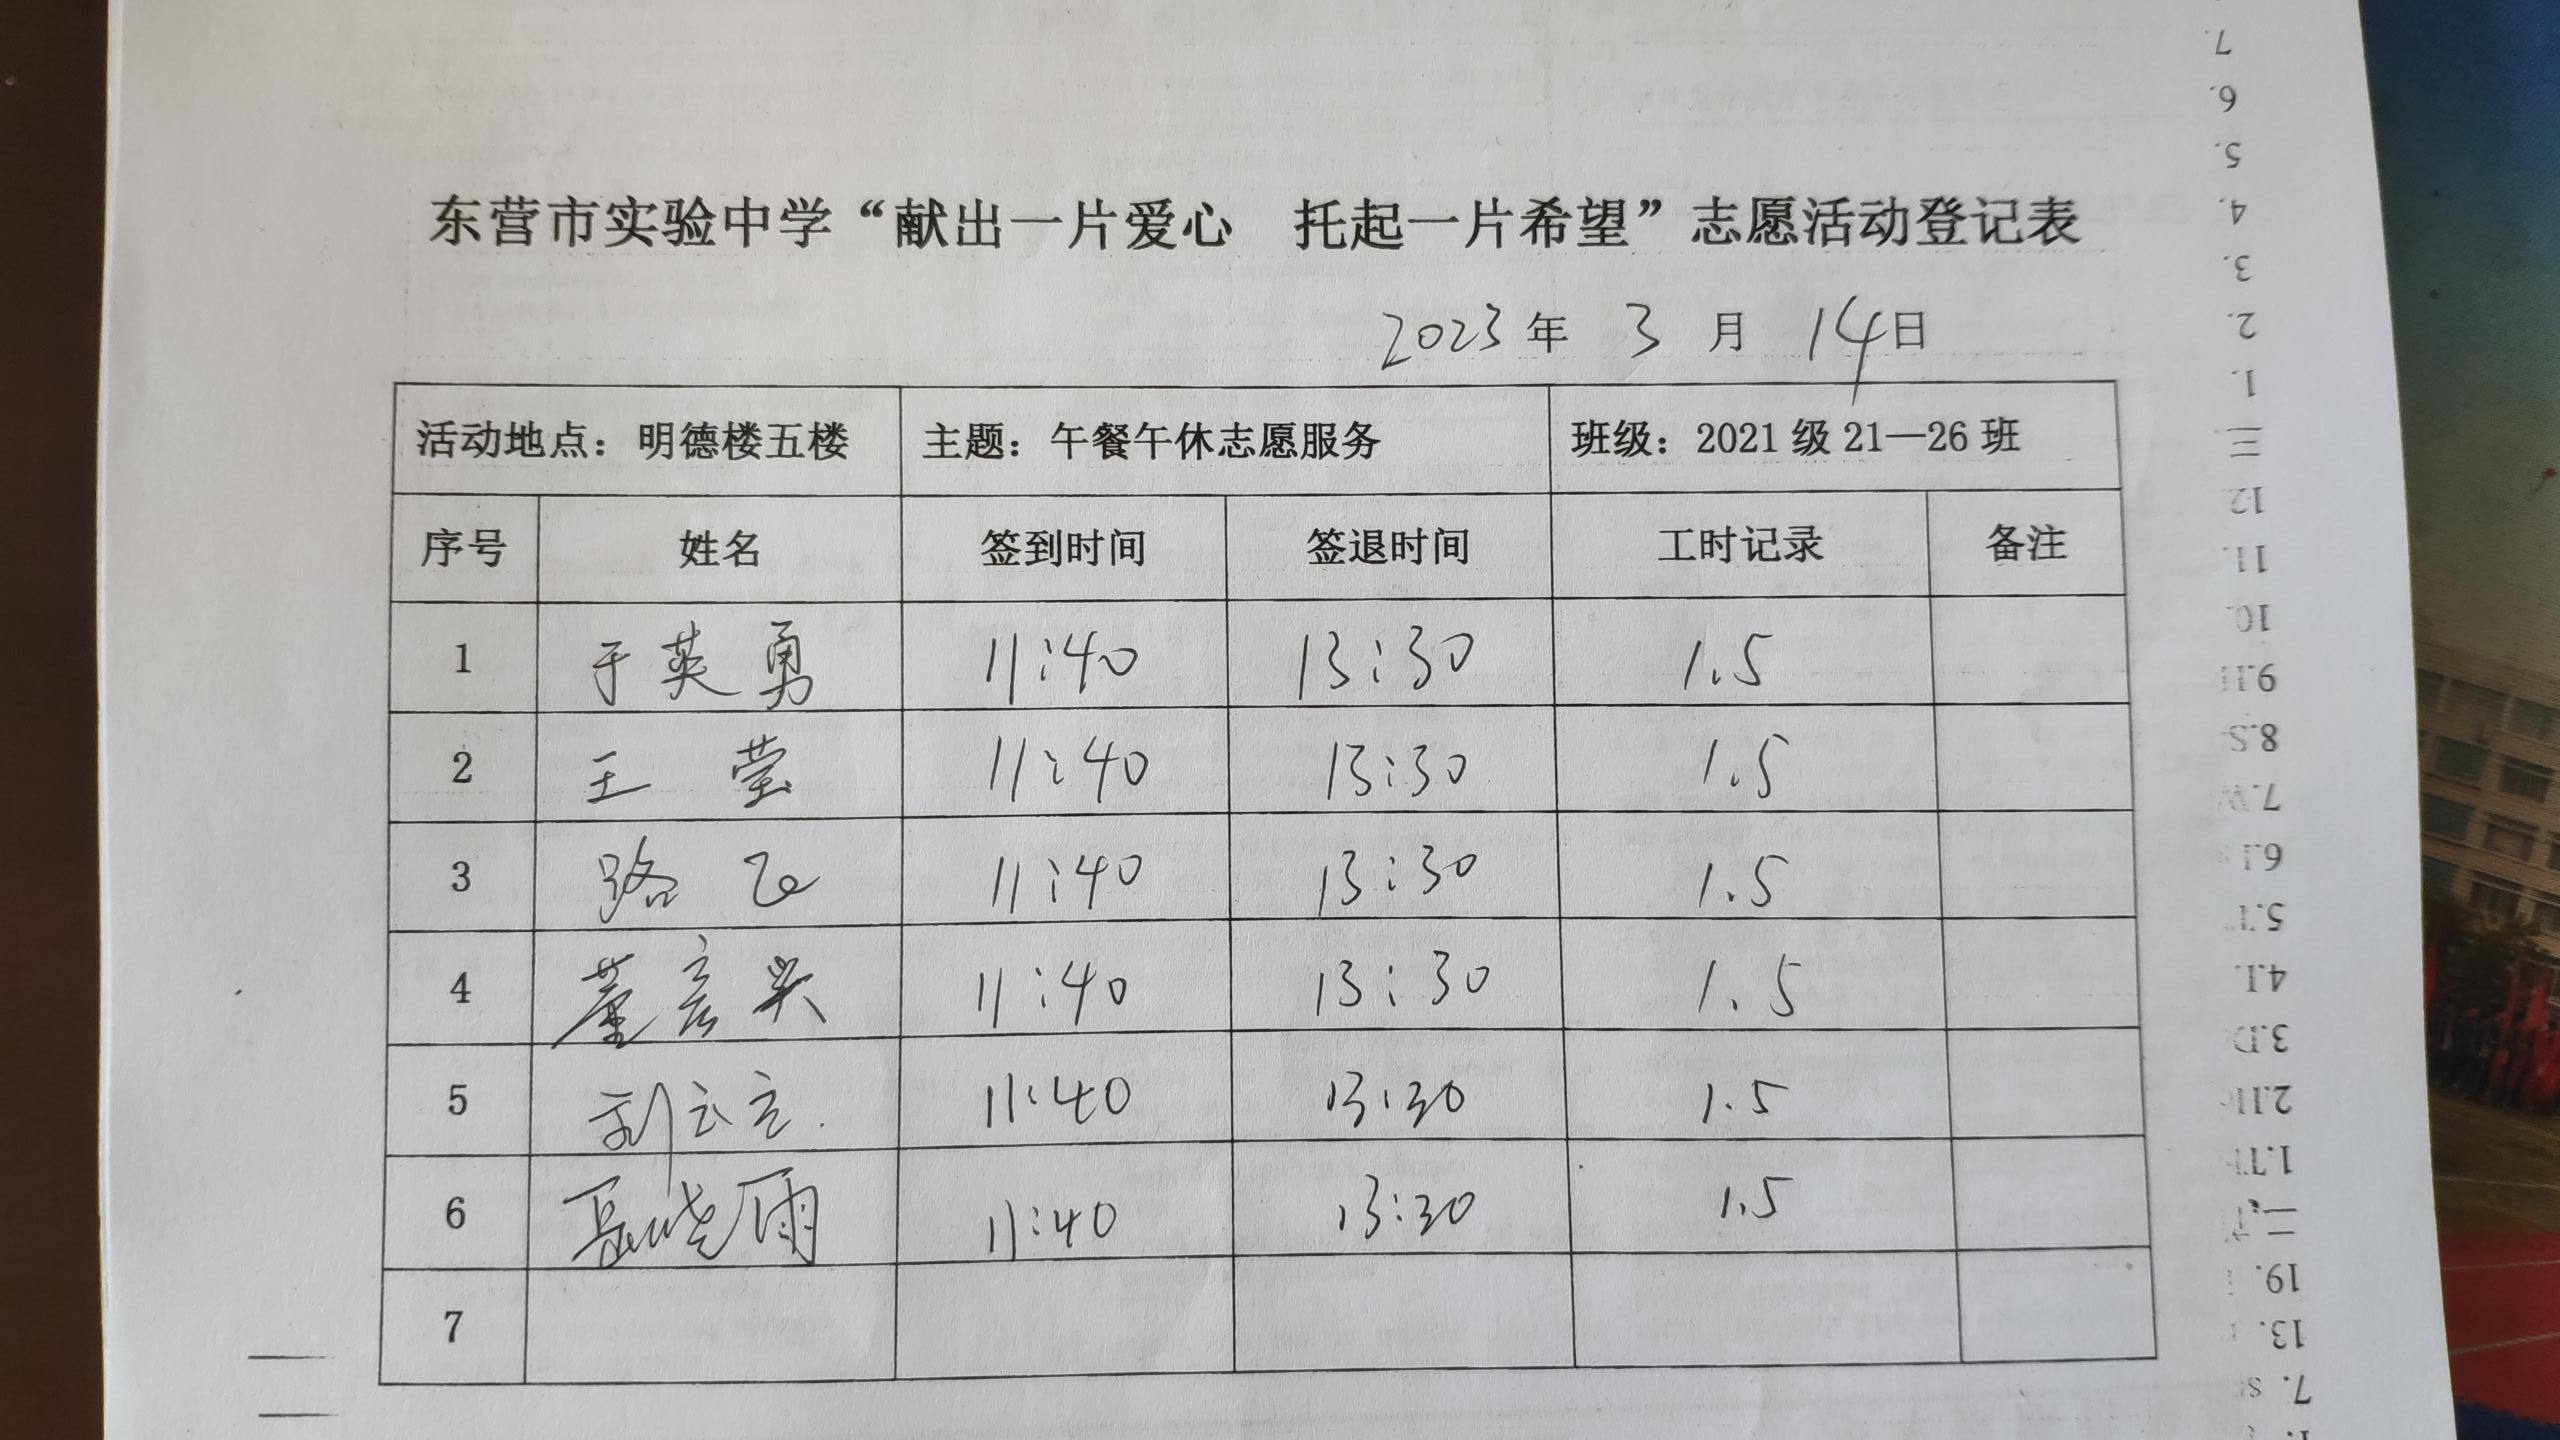 东营市实验中学“献出一片爱心 托起一片希望”志愿活动登记表
2023年 3 月 14日
活动地点：明德楼五楼 主题：午餐午休志愿服务 班级：2021 级 21—26 班
序号 姓名 签到时间 签退时间 工时记录 备注
1 于英勇 11:40 13:30 1.5
2 王 莹 11:40 13:30 1.5
3 路 飞 11:40 13:30 1.5
4 董彦 11:40 13:30 1.5
5 刘云 11:40 13:30 1.5
6 晓雨 11:40 13:30 1.5
7
7.
6.
5.
4.
3.
2.
1.
三
12
11.
10.
9.
8.S
7.W
6.I
5.T
4.I.
3.D
2.II
1.T
二
19.
13.
7.